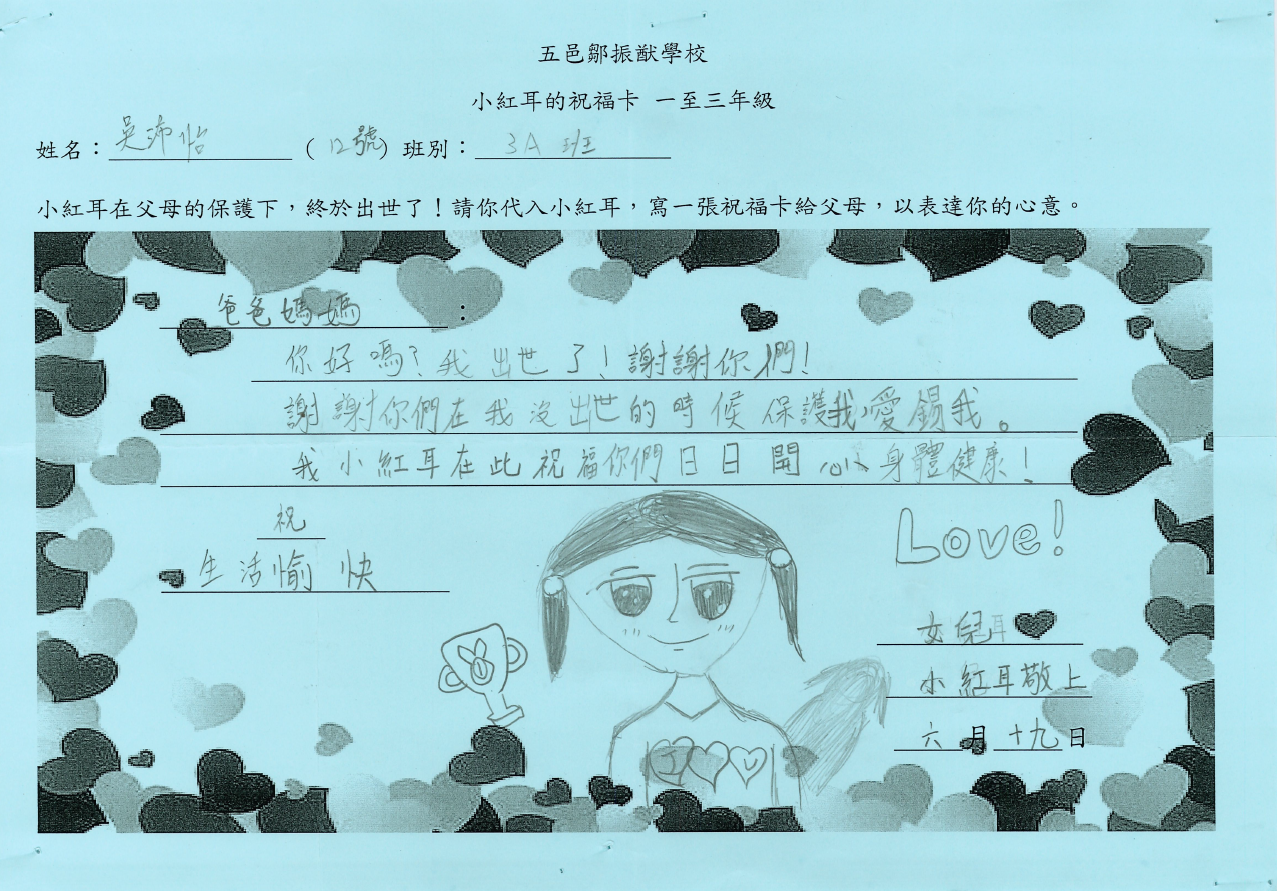 五邑鄒振猷學校
小紅耳的祝福卡 一至三年級
姓名：吳沛怡 (12號) 班別：3A 班
小紅耳在父母的保護下，終於出世了！請你代入小紅耳，寫一張祝福卡給父母，以表達你的心意。
爸爸媽媽：
你好嗎？我出世了！謝謝你們！
謝謝你們在我沒出世的時候保護我，愛錫我。
我小紅耳在此祝福你們日日開心身體健康！
祝
生活愉快
Love!
女兒耳
小紅耳敬上
六月十九日
I U